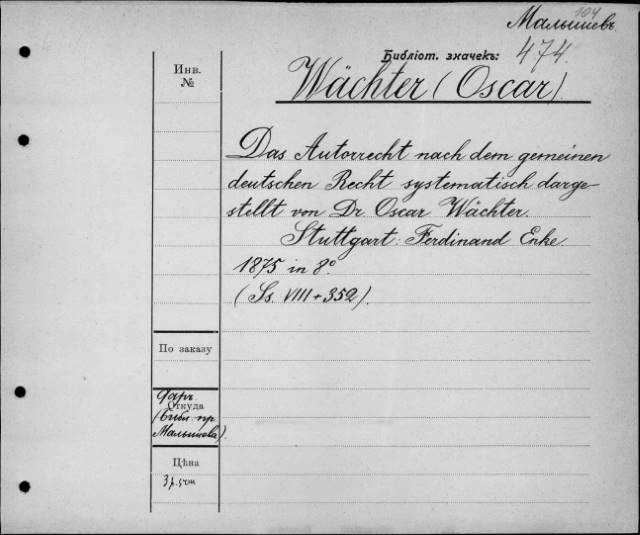 104
Малышевъ
Библіот. значекъ: 474.
Инв.
№
Wächter (Oscar).
Das Autorrecht nach dem gemeinen
deutschen Recht systematisch darge-
stellt von Dr. Oscar Wächter.
Stuttgart: Ferdinand Enke.
1875 in 8º.
(Ss. VIII + 352).
По заказу
Даръ
Откуда
(Библ. пр.
Малышева).
Цѣна
3 р.